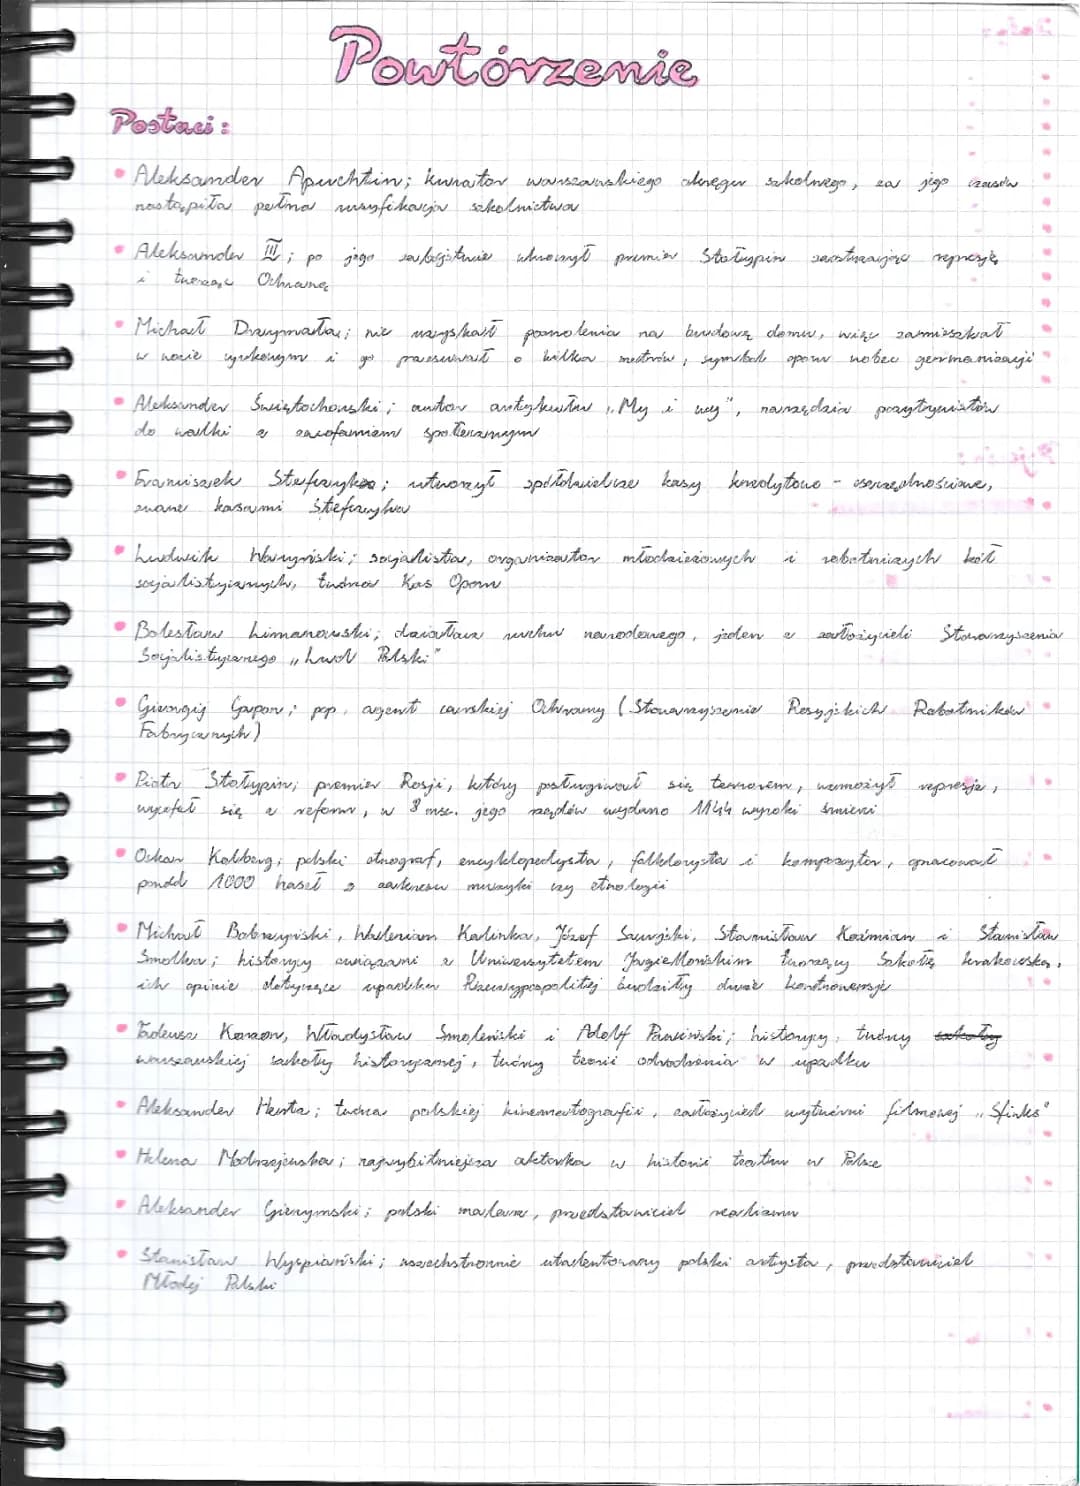 Powtórzenie
Postaci:
• Aleksander Apuchtin; kurator warszawskiego okręgu szkolnego, za jego czasów
nastąpiła pełna rusyfikacja szkolnictwa
• Aleksander III; po jego zabójstwie wkroczył premier Stołypin zaostrzając represję
i tworząc Ochranę
• Michał Drzymała; nie uzyskał pozwolenia na budowę domu, więc zamieszkał
w wozie cyrkowym i go przesuwał o kilka metrów, symbol oporu wobec germanizacji
• Aleksander Świętochowski; autor artykułu "My i wy", narzędzia pozytywistów
do walki z zacofaniem społecznym
• Franciszek Stefczyk; utworzył spółdzielcze kasy kredytowo - oszczędnościowe,
zwane kasami Stefczyka
• Ludwik Waryński; socjalista, organizator młodzieżowych i robotniczych kół
socjalistycznych, twórca Kas Oporu
• Bolesław Limanowski; działacz ruchu narodowego, jeden z założycieli Stowarzyszenia
Socjalistycznego "Lud Polski"
• Gieorgij Gapon; pop, agent carskiej Ochrany (Stowarzyszenie Rosyjskich Robotników
Fabrycznych)
• Piotr Stołypin; premier Rosji, który posługiwał się terrorem, wzmożył represje,
wycofał się z reform, w 8 msc. jego rządów wydano 1144 wyroki śmierci
• Oskar Kolberg; polski etnograf, encyklopedysta, folklorysta i kompozytor, opracował
ponad 1000 haseł z zakresu muzyki czy etnologii
• Michał Bobrzyński, Walerian Kalinka, Józef Szujski, Stanisław Koźmian i Stanisław
Smolka; historycy związani z Uniwersytetem Jagiellońskim tworzący Szkołę krakowską,
ich opinie dotyczące upadku Rzeczypospolitej budziły duże kontrowersje
• Tadeusz Korzon, Władysław Smoleński i Adolf Pawiński; historycy, twórcy szkoły
warszawskiej szkoły historycznej, twórcy teorii odrodzenia w upadku
• Aleksander Hertz; twórca polskiej kinematografii, założyciel wytwórni filmowej "Sfinks"
• Helena Modrzejewska; najwybitniejsza aktorka w historii teatru w Polsce
• Aleksander Gierymski; polski malarz, przedstawiciel realizmu
• Stanisław Wyspiański; wszechstronnie utalentowany polski artysta, przedstawiciel
Młodej Polski